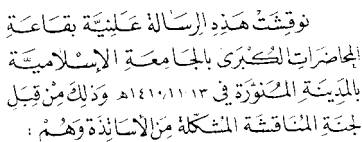 نوقِشَتْ هَذِهِ الرِسَالة عَلَنِيَّة بِقَاعَةِ
المحَاضَرَاتِ الكُبْرَى بالجَامِعَةِ الإسْلَاميَّة
بالمدِينَةِ المُنَوَّرَة في ١٣-١١-١٤١٠هـ وَذلِكَ مِنْ قِبَلِ
لجنَةِ المُنَاقَشَةِ المُشَكَّلَة مِنَ الأسَاتِذَة وَهُمْ :